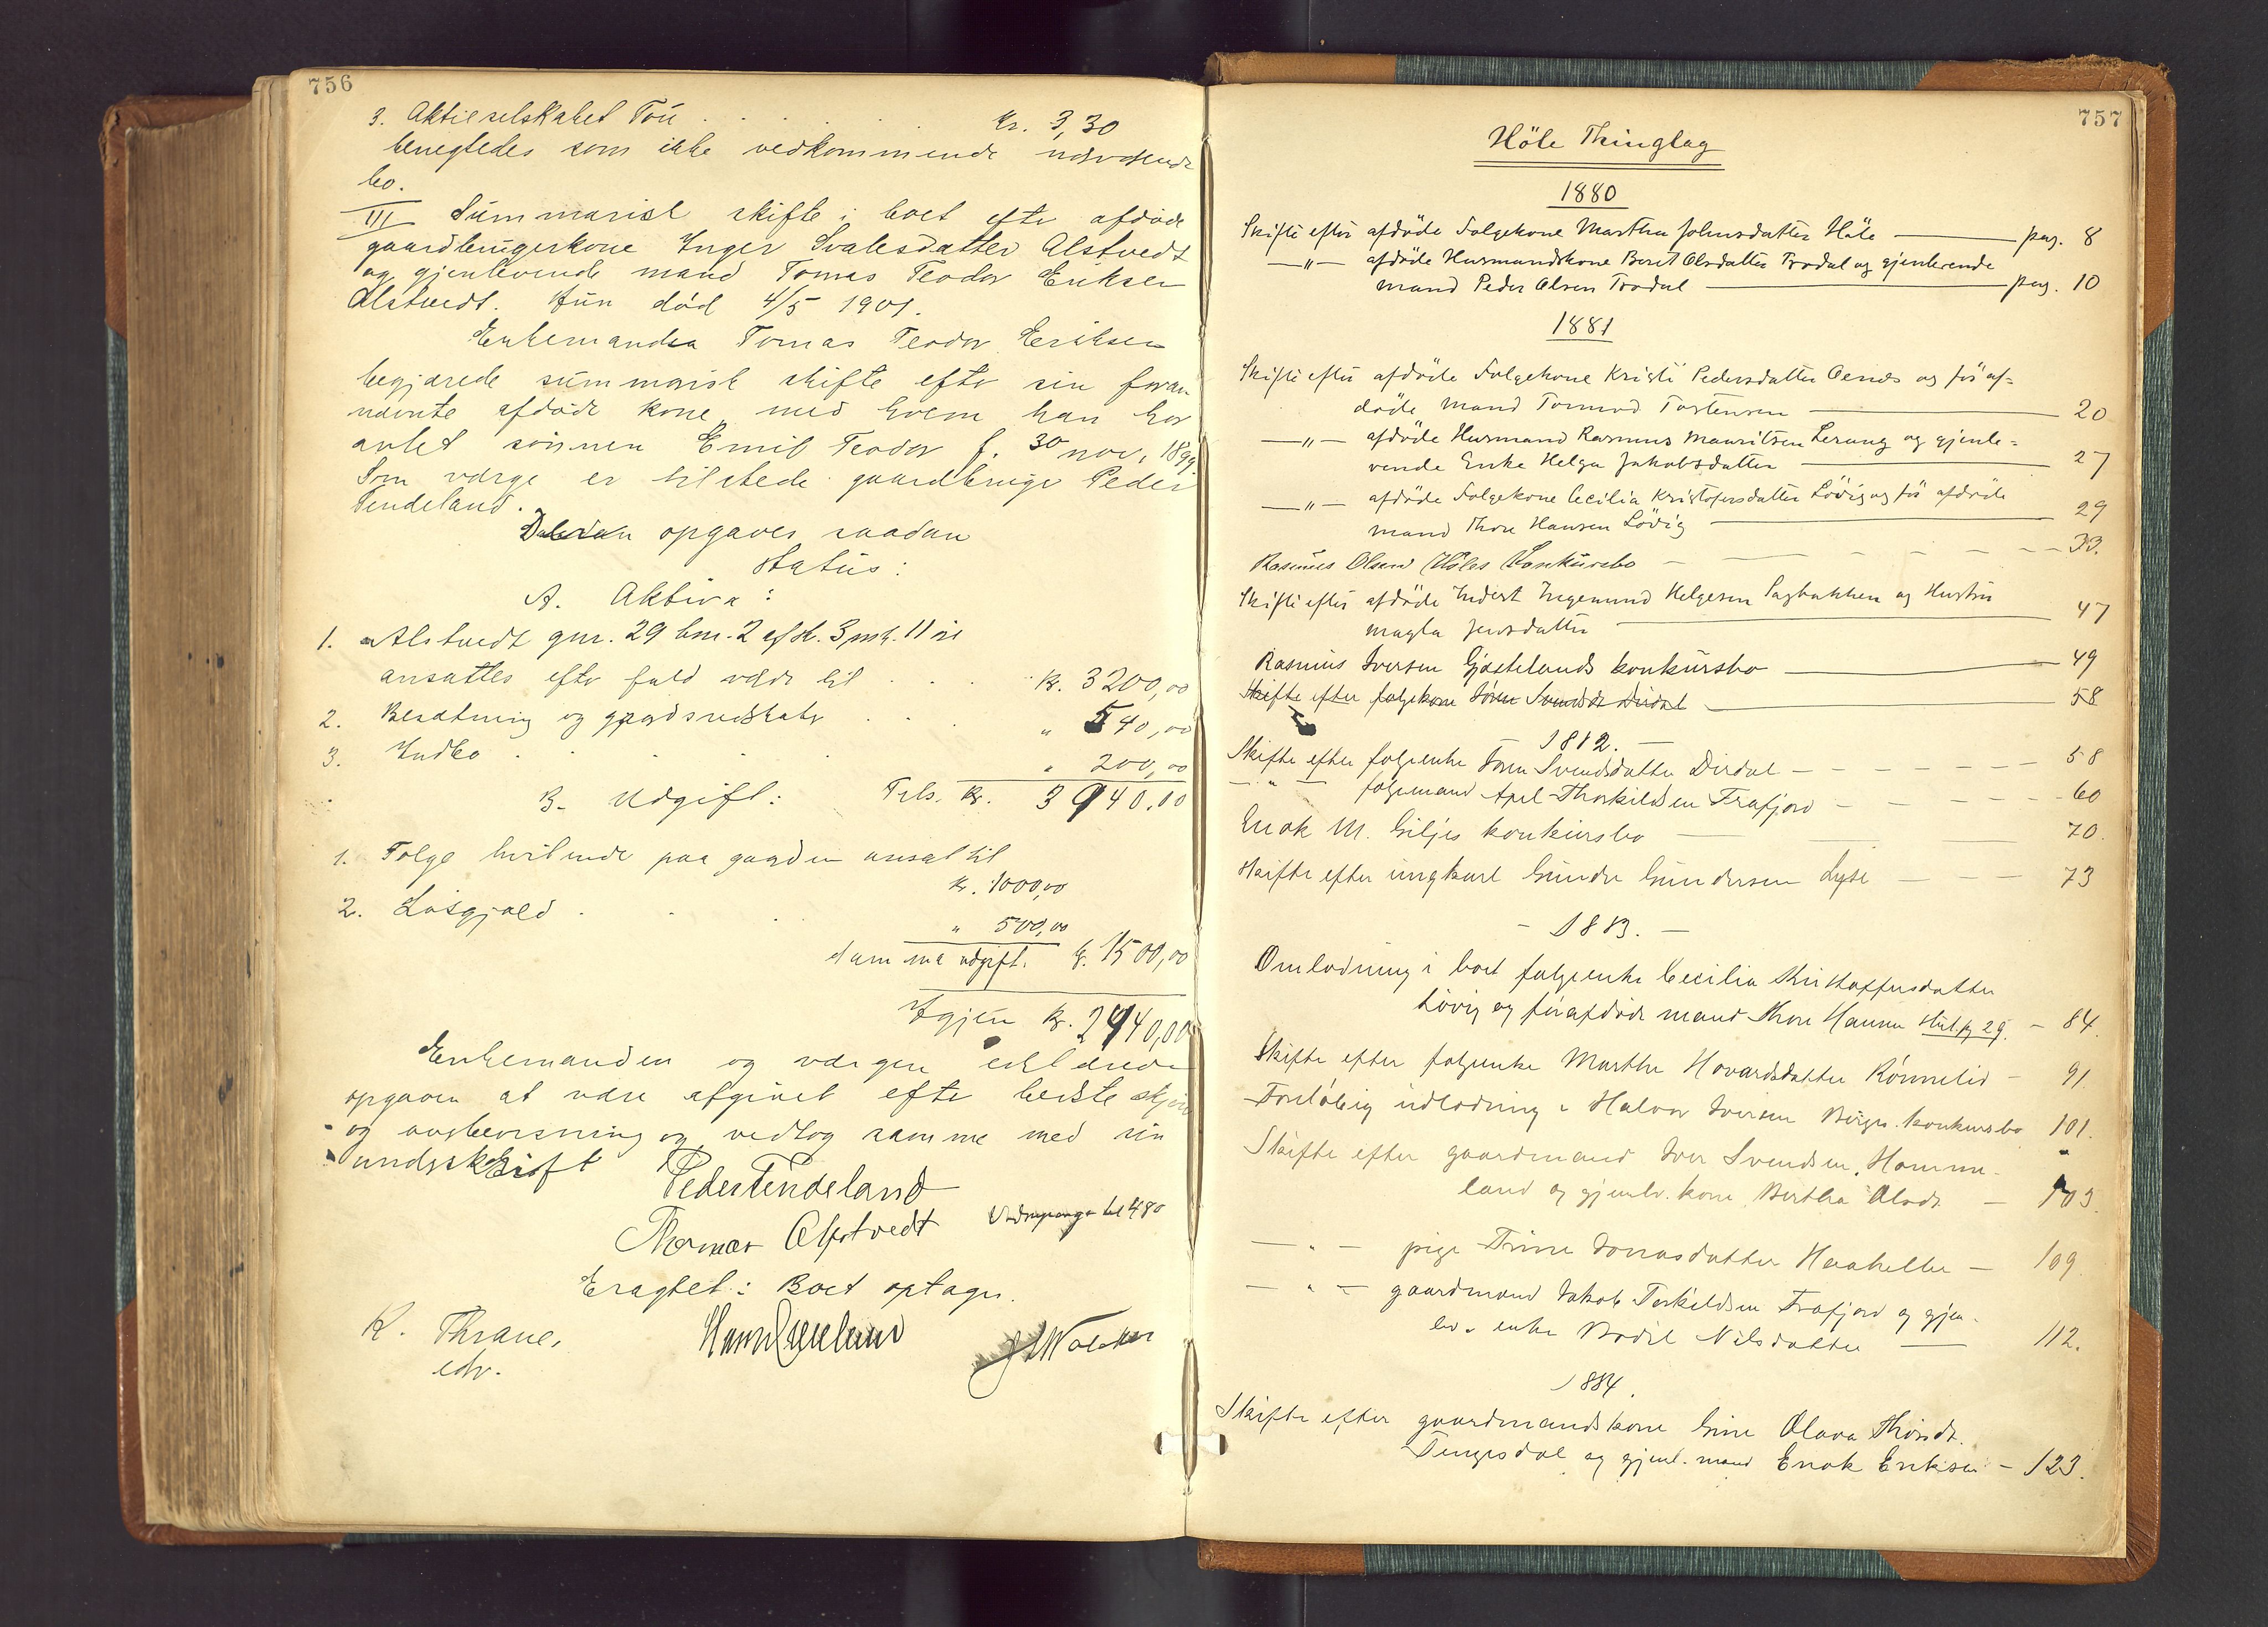 756
3. Aktieselskabet Tou . . . . . kr. 3,30
benegtedes som ikke vedkommende nærværende
bo.
III Summarisk skifte i boet efter afdøde
gaardbrugerkone Inger Svalesdatter Alstvedt
og gjenlevende mand Tomas Teodor Eriksen
Alstvedt. Hun død 4/5 1901.
Enkemanden Tomas Teodor Eriksen
begjærede summarisk skifte efter sin foran
nævnte afdøde kone med hvem han har
avlet sønnen Emil Teodor f. 30 nov. 1899.
Som værge er tilstede gaardbruger Peder
Tendeland.
opgaves saadan
Status:
A. Aktiva:
1. Alstvedt gnr. 29 bnr. 2 af sk. 3 mk. 11 øre
ansattes efter fuld værdi til . . . kr. 3200,00
2. Besætning og gaardsredskaber . . . " 540,00
3. Indbo . . . . " 200,00
B. Udgift: Tils. kr. 3940.00
1. Følge hvilende paa gaarden ansat til
kr. 1000,00
2. Løsgjæld . . . " 500,00
Samme udgift. kr. 1500,00
Igjen kr. 2440,00
Enkemanden og værgen erklærede
opgaven at være afgivet efter bedste skjøn
og overbevisning og vedtog samme med sin
underskrift
Peder Tendeland
Thomas Alstvedt
Eragtet: Boet optages.
K. Thrane,
edv.
757
Höle Thinglag
1880
Skifte efter afdöde Folgekone Martha Johnsdatter Höle — pag. 8
—"— afdöde Husmandskone Beret Olsdatter Trodal og gjenlevende
mand Peder Olsen Trodal — pag. 10
1881
Skifte efter afdöde Folgekone Kristi Pedersdatter Oenæs og för af=
döde Mand Tormod Tostensen — 20
—"— afdöde Husmand Rasmus Mauritsen Lerang og gjenle=
vende Enke Helga Jakobsdatter — 27
—"— afdöde Folgekone Cecilia Kristofersdatter Lövig og för afdöde
mand Thore Hansen Lövig — 29
Rasmus Olsen Höles Konkursbo — 33.
Skifte efter afdöde Inderst Ingemund Helgesen Sagbakken og Hustru
Magla Jensdatter — 47
Rasmus Iversen Gjæstelands konkursbo — 49
Skifte efter folgekone Søren Svendsdr Dirdal — 58
1882. —
Skifte efter folgeenke Søren Svendsdatter Dirdal — 58
— " — folgemand Apel Thorkildsen Frafjord — 60
Enok M. Giljes konkursbo — 70.
Skifte efter ungkarl Gunder Gundersen Lyse — 73
— 1883. —
Omlodning i boet folgeenke Cecilia Kristoffersdatter
Lövig og förafdöde mand Thore Hansen Hul. pg 29. — 84.
Skifte efter folgeenke Marthe Hovardsdatter Rönnelid — 91.
Foreløbig udlodning i Halvor Iversen Berges konkursbo 101.
Skifte efter gaardmand Iver Svendsen Homme-
land og gjenlv. kone Bertha Olsdr. — 103.
— " — pige Trine Jonasdatter Haaheller — 109.
— " — gaardmand Jakob Terkildsen Frafjord og gjen-
lev. enke Bodil Nilsdatter — 112.
1884.
Skifte efter gaardmandskone Gine Olava Thorsdr.
Tengesdal og gjenl. mand Enok Eriksen — 123.